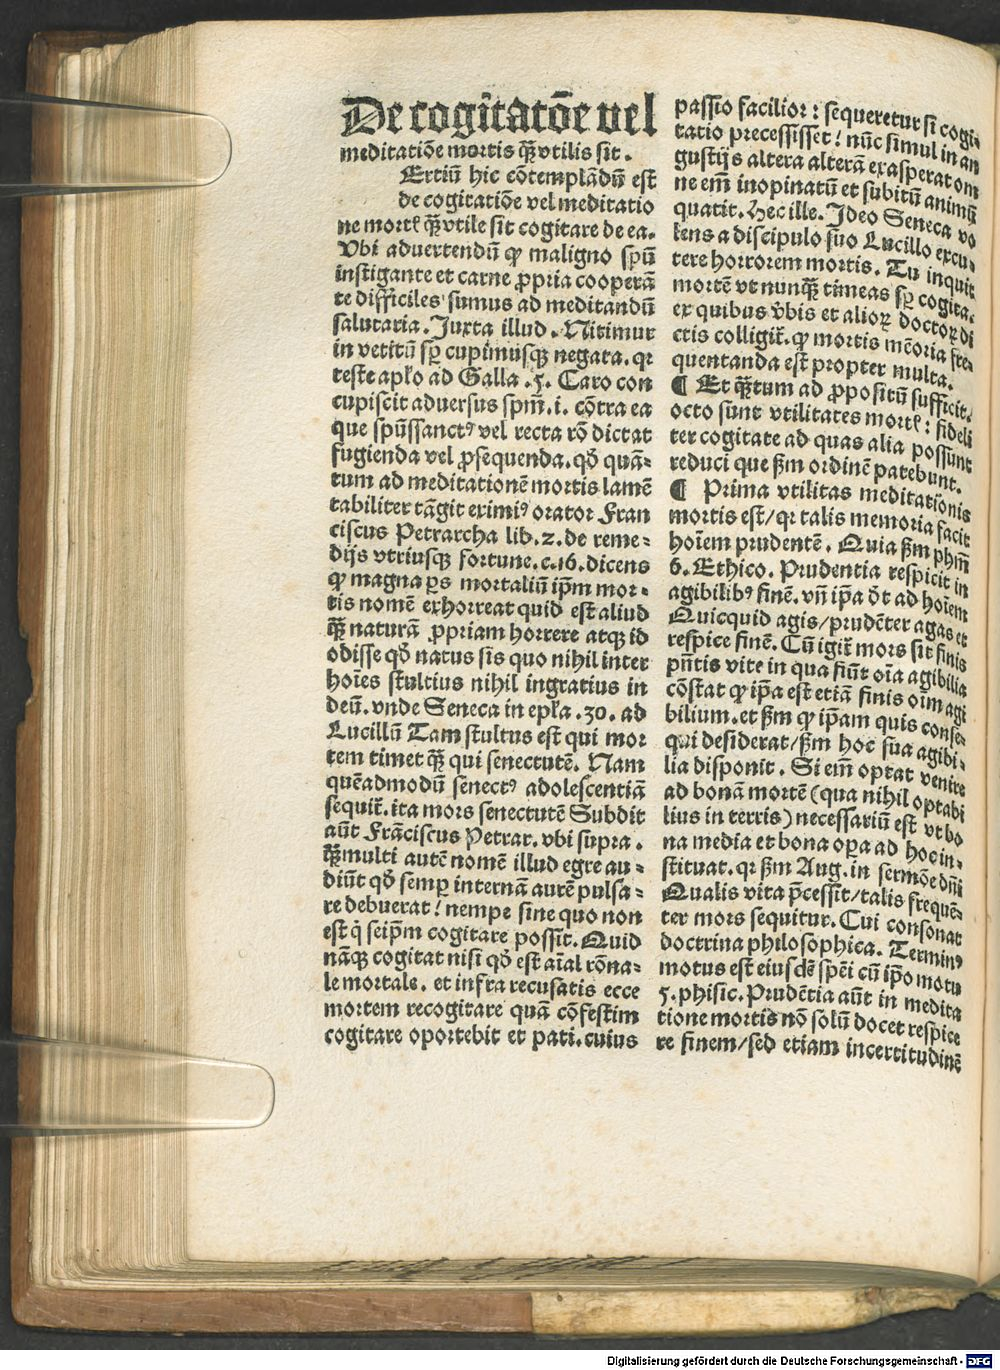 De cogitatōe vel
meditatiōe mortis qꝫ̄ vtilis sit.
Ertiū hic cōtemplādū est
de cogitatiōe vel meditatio
ne mortꝭ qꝫ̄ vtile sit cogitare de ea.
Vbi aduertendū ꝙ maligno spū
instigante et carne ꝓpria cooperā
te difficiles sumus ad meditandū
salutaria. Juxta illud. Nitimur
in vetitū sꝑ cupimusqꝫ negata. qꝛ
teste apľo ad Galla .5. Caro con
cupiscit aduersus spm̄. i. cōtra ea
que spūssanctꝰ vel recta rō dictat
fugienda vel ꝓsequenda. qđ quā-
tum ad meditationē mortis lamē
tabiliter tāgit eximiꝰ orator Fran
ciscus Petrarcha lib. 2. de reme-
dijs vtriusqꝫ fortune. c. 16. dicens
ꝙ magna ps mortaliū ip̄m mor-
tis nomē exhorreat quid est aliud
qꝫ̄ naturā ꝓpriam horrere atqꝫ id
odisse qđ natus sis quo nihil inter
hoīes stultius nihil ingratius in
deū. vnde Seneca in epľa .30. ad
Lucillū Tam stultus est qui mor
tem timet qꝫ̄ qui senectutē. Nam
quēadmodū senectꝰ adolescentiā
sequit̄. ita mors senectutē Subdit
aūt Frāciscus Petrar. vbi supra.
qꝫ̄ multi autē nomē illud egre au-
diūt qđ semꝑ internā aurē pulsa-
re debuerat! nempe sine quo non
est q̇ seip̄m cogitare possit. Quid
nāqꝫ cogitat nisi qđ est aīal rōna-
le mortale. et infra recusatis ecce
mortem recogitare quā cōfestim
cogitare oportebit et pati. cuius
passio facilior: sequeretur si cogi-
tatio precessisset! nūc simul in an
gustijs altera alterā exasperat om
ne em̄ inopinatū et subitū animū
quatit. Hec ille. Ideo Seneca vo
lens a discipulo suo Lucillo excu-
tere horrorem mortis. Tu inquit
mortē vt nunqꝫ̄ timeas sꝑ cogita.
ex quibus v̄bis et alioꝝ doctoꝝ di
ctis colligit̄. ꝙ mortis mēoria fre-
quentanda est propter multa.
¶ Et qꝫ̄tum ad ꝓpositū sufficit.
octo sunt vtilitates mortꝭ: fideli
ter cogitate ad quas alia possunt
reduci que ẜm ordinē patebunt.
¶ Prima vtilitas meditationis
mortis est/qꝛ talis memoria facit
hoīem prudentē. Quia ẜm phm̄
6. Ethico. Prudentia respicit in
agibilibꝰ finē. vn̄ ip̄a ōt ad hoīem
Quicquid agis/prudēter agas et
respice finē. Cū igit̄ mors sit finis
pn̄tis vite in qua fiūt oīa agibilia
cōstat ꝙ ip̄a est etiā finis oīm agi
bilium. et ẜm ꝙ ip̄am quis conse-
qui desiderat/ẜm hoc sua agibi-
lia disponit. Si em̄ optat venire
ad bonā mortē (qua nihil optabi
lius in terris) necessariū est vt bo
na media et bona oꝑa ad hoc in-
stituat. qꝛ ẜm Aug. in sermōe dn̄i
Qualis vita p̄cessit/talis frequē-
ter mors sequitur. Cui consonat
doctrina philosophica. Terminꝰ
motus est eiusdē spēi cū ip̄o motu
5. phisic. Prudētia aūt in medita
tione mortis nō solū docet respice
re finem/sed etiam incertitudinē
Digitalisierung gefördert durch die Deutsche Forschungsgemeinschaft - DFG